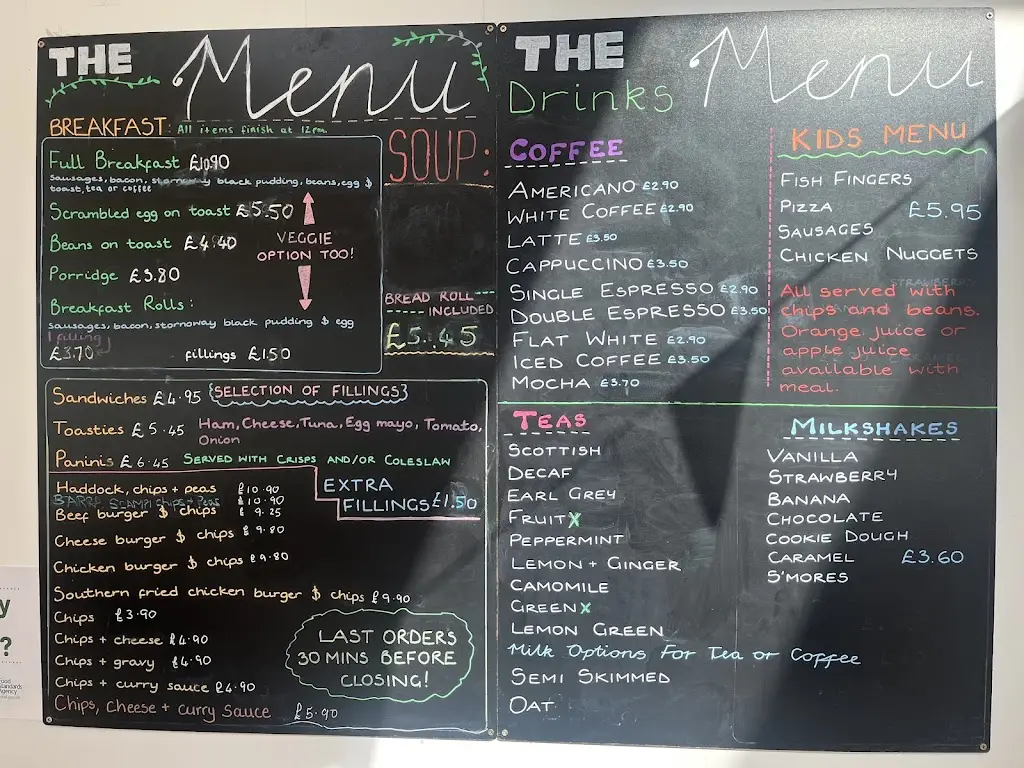 THE Menu
BREAKFAST: All items finish at 12pm.
Full Breakfast £10.90
sausages, bacon, stornoway black pudding, beans, egg &
toast, tea or coffee
Scrambled egg on toast £5.50
Beans on toast £4.40
Porridge £3.80
Breakfast Rolls:
sausages, bacon, stornoway black pudding & egg
1 filling
£3.70 fillings £1.50
VEGGIE
OPTION TOO!
SOUP:
BREAD ROLL
INCLUDED
£5.45
Sandwiches £4.95 {SELECTION OF FILLINGS}
Toasties £5.45 Ham, Cheese, Tuna, Egg mayo, Tomato,
Onion
Paninis £6.45 SERVED WITH CRISPS AND/OR COLESLAW
EXTRA
FILLINGS £1.50
Haddock, chips + peas £10.90
SCAMPI Chips + Peas £10.90
Beef burger & chips £9.25
Cheese burger & chips £9.80
Chicken burger & chips £9.80
Southern fried chicken burger & chips £9.90
Chips £3.90
Chips + cheese £4.90
Chips + gravy £4.90
Chips + curry sauce £4.90
Chips, Cheese + Curry Sauce £5.90
LAST ORDERS
30 MINS BEFORE
CLOSING!
THE Menu
Drinks
COFFEE
AMERICANO £2.90
WHITE COFFEE £2.90
LATTE £3.50
CAPPUCCINO £3.50
SINGLE ESPRESSO £2.90
DOUBLE ESPRESSO £3.50
FLAT WHITE £2.90
ICED COFFEE £3.50
MOCHA £3.70
KIDS MENU
FISH FINGERS
PIZZA £5.95
SAUSAGES
CHICKEN NUGGETS
All served with
chips and beans.
Orange juice or
apple juice
available with
meal.
TEAS
SCOTTISH
DECAF
EARL GREY
FRUIT X
PEPPERMINT
LEMON + GINGER
CAMOMILE
GREEN X
LEMON GREEN
Milk Options For Tea or Coffee
SEMI SKIMMED
OAT
MILKSHAKES
VANILLA
STRAWBERRY
BANANA
CHOCOLATE
COOKIE DOUGH
CARAMEL £3.60
S'MORES
y
?
Food
Standards
Agency